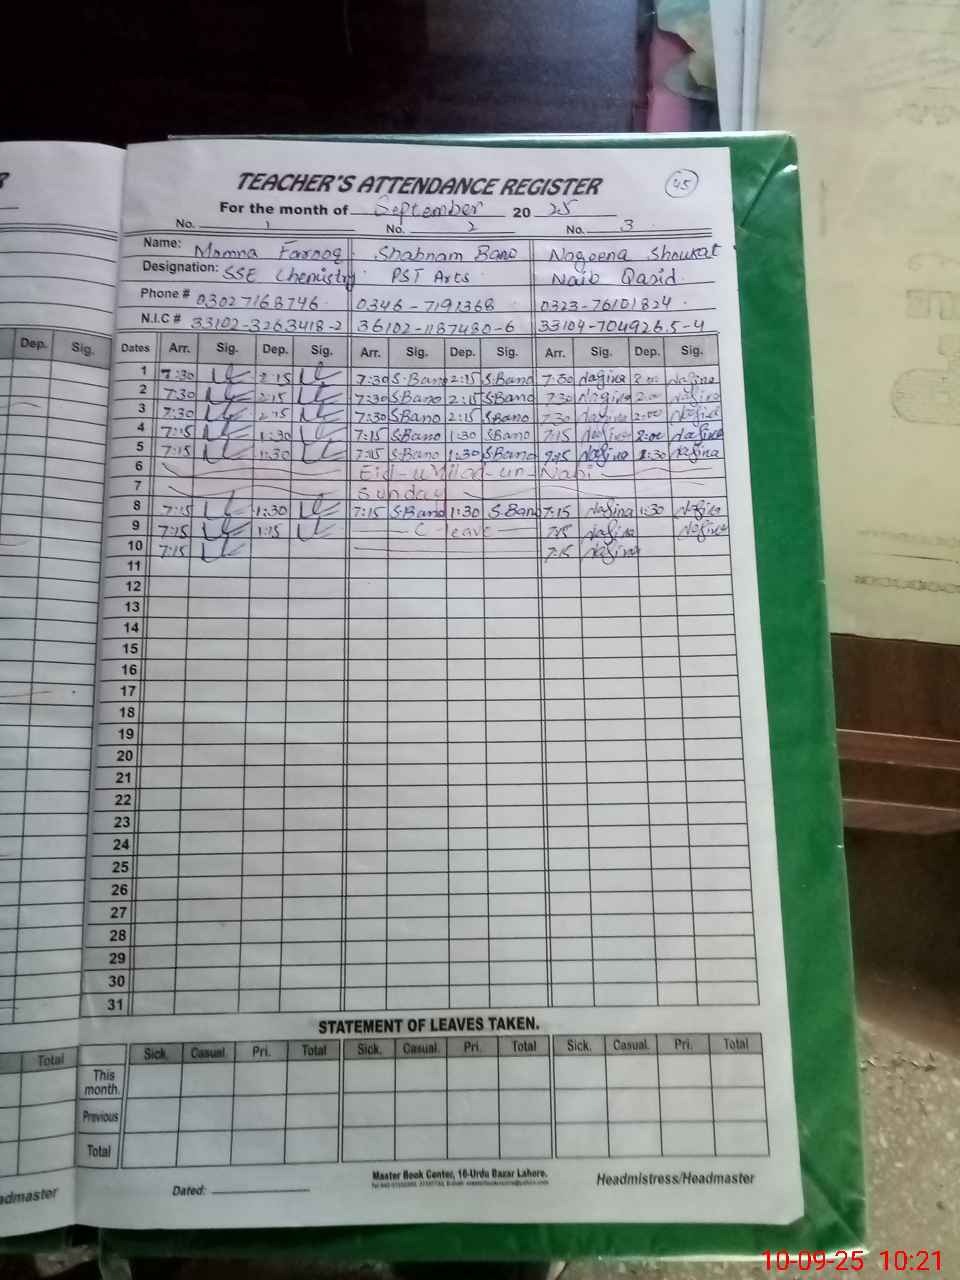 TEACHER'S ATTENDANCE REGISTER
45
For the month of September 20 25
No. 1 No. 2 No. 3
Name: Momna Farooq Shabnam Bano Nageena Shoukat
Designation: SSE Chemistry PST Arts Naib Qasid
Phone # 03027168746 0346-7191368 0323-76101824
N.I.C # 33102-3263418-2 36102-1187480-6 33104-704926.5-4
Dep. Sig.
Dates Arr. Sig. Dep. Sig. Arr. Sig. Dep. Sig. Arr. Sig. Dep. Sig.
1 7:30 2:15 7:30 S.Bano 2:15 S.Bano 7:30 Nagina 2:00 Nagina
2 7:30 2:15 7:30 S.Bano 2:15 S.Bano 7:30 Nagina 2:00 Nagina
3 7:30 2:15 7:30 S.Bano 2:15 S.Bano 7:30 Nagina 2:00 Nagina
4 7:15 1:30 7:15 S.Bano 1:30 S.Bano 7:15 Nagina 2:00 Nagina
5 7:15 1:30 7:15 S.Bano 1:30 S.Bano 7:15 Nagina 1:30 Nagina
6 Eid-u Milad-un-Nabi
7 Sunday
8 7:15 1:30 7:15 S.Bano 1:30 S.Bano 7:15 Nagina 1:30 Nagina
9 7:15 1:15 C leave 7:15 Nagina Nagina
10 7:15 7:15 Nagina
11
12
13
14
15
16
17
18
19
20
21
22
23
24
25
26
27
28
29
30
31
STATEMENT OF LEAVES TAKEN.
Total
Sick. Casual. Pri. Total Sick. Casual. Pri. Total Sick. Casual. Pri. Total
This month.
Previous
Total
Master Book Center, 16-Urdu Bazar Lahore.
Dated: Headmistress/Headmaster
admaster
10-09-25 10:21